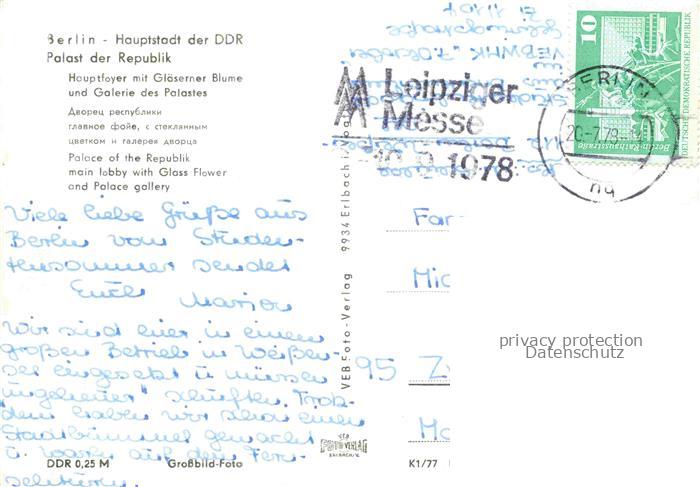 Berlin - Hauptstadt der DDR
Palast der Republik
Hauptfoyer mit Gläserner Blume
und Galerie des Palastes
Дворец республики
главное фойе, с стеклянным
цветком и галерея дворца
Palace of the Republik
main lobby with Glass Flower
and Palace gallery
Viele liebe Grüße aus
Berlin vom Studen-
tensommer sendet
Eure
Marion
Wir sind hier in einem
großen Betrieb in Weißen-
see eingesetzt u. müssen
"ungeheuer" schuften. Trotz-
dem haben wir schon einen
Stadtbummel gemacht
u. waren auf dem Fern-
sehturm.
DDR 0,25 M
Großbild-Foto
VEB Foto-Verlag
9934 Erlbach i. Vogtl.
FOTO VERLAG
ERLBACH
K1/77
Leipziger
Messe
1978
BERLIN
20.-7.78
10
Berlin-Rathausstraße
DEUTSCHE DEMOKRATISCHE REPUBLIK
VEB WHK "7. Oktober"
Fam
95
privacy protection
Datenschutz